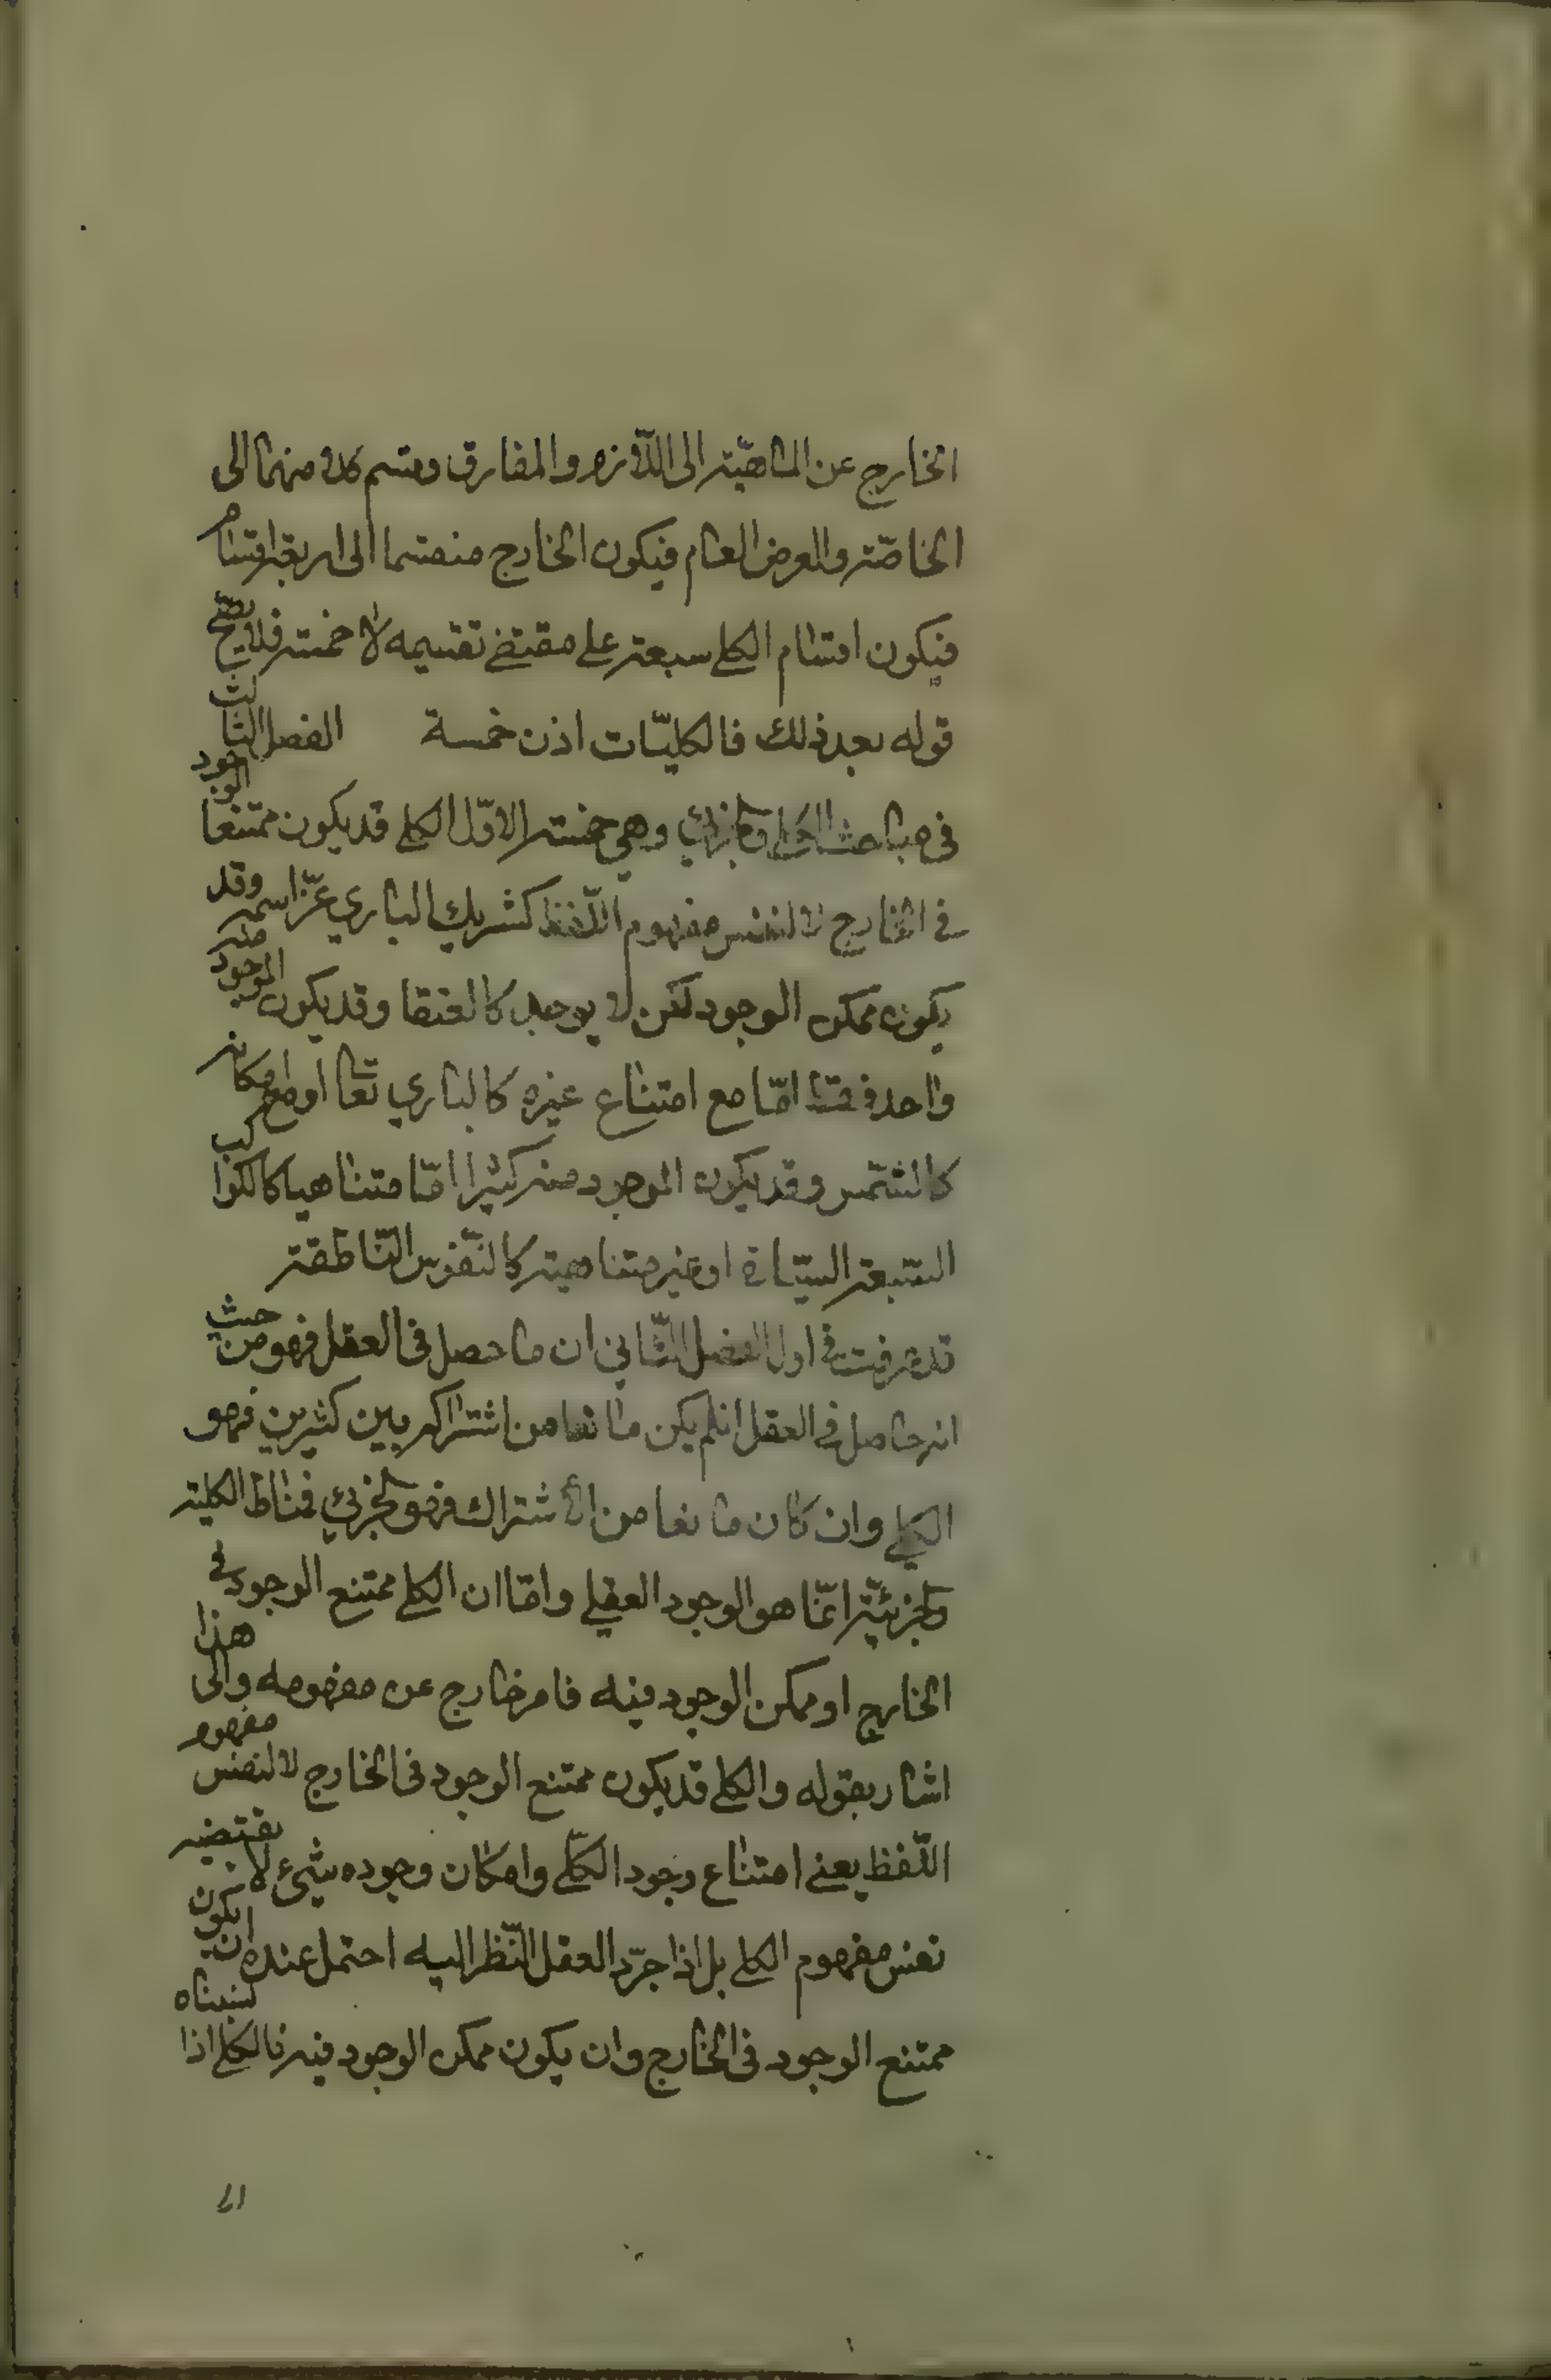 الخارج عن الماهيّة الى اللّازم والمفارق وقسم كلا منهما الى
الخاصّة والعرض العام فيكون الخارج منقسما الى اربعة اقسام
فيكون اقسام الكلي سبعة على مقتضى تقسيمه لا خمسة فلا يصح
قوله بعد ذلك فالكليّات اذن خمسة الفصل الثالث
فى مباحث الكلي والجزئي وهي خمسة الاوّل الكلي قد يكون ممتنع الوجود
فى الخارج لا لنفس مفهوم اللّفظ كشريك الباري عزّ اسمه وقد
يكون ممكن الوجود لكن لا يوجد كالعنقا وقد يكون الموجود منه
واحد فقط امّا مع امتناع غيره كالباري تعا او مع امكانه
كالشمس وقد يكون الموجود منه كثيرا امّا متناهيا كالكواكب
السبعة السيّارة او غير متناهية كالنّفوس النّاطقة
قد عرفت فى اول الفصل الثّاني ان ما حصل فى العقل فهو من حيث
انه حاصل فى العقل ان لم يكن مانعا من اشتراكه بين كثيرين فهو
الكلي وان كان مانعا من الأشتراك فهو الجزئي فمناط الكلية
والجزئيّة انمّا هو الوجود العقلي وامّا ان الكلي ممتنع الوجود فى
الخارج او ممكن الوجود فيه فامر خارج عن مفهومه والى هذا
اشار بقوله والكلي قد يكون ممتنع الوجود فى الخارج لا لنفس مفهوم
اللّفظ يعنى امتناع وجود الكلّي وامكان وجوده شيئ لا يقتضيه
نفس مفهوم الكلي بل اذا جرّد العقل النّظر اليه احتمل عنده ان يكون
ممتنع الوجود فى الخارج وان يكون ممكن الوجود فيه فالكلي اذا نسبناه